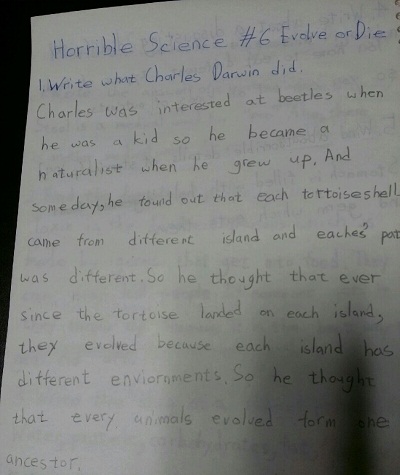 Horrible Science #6 Evolve or Die
1. Write what Charles Darwin did.
Charles was interested at beetles when
he was a kid so he became a
naturalist when he grew up. And
someday, he found out that each tortoise shell
came from different island and eaches' pat
was different. So he thought that ever
since the tortoise landed on each island,
they evolved because each island has
different enviornments. So he thought
that every animals evolved form one
ancestor.